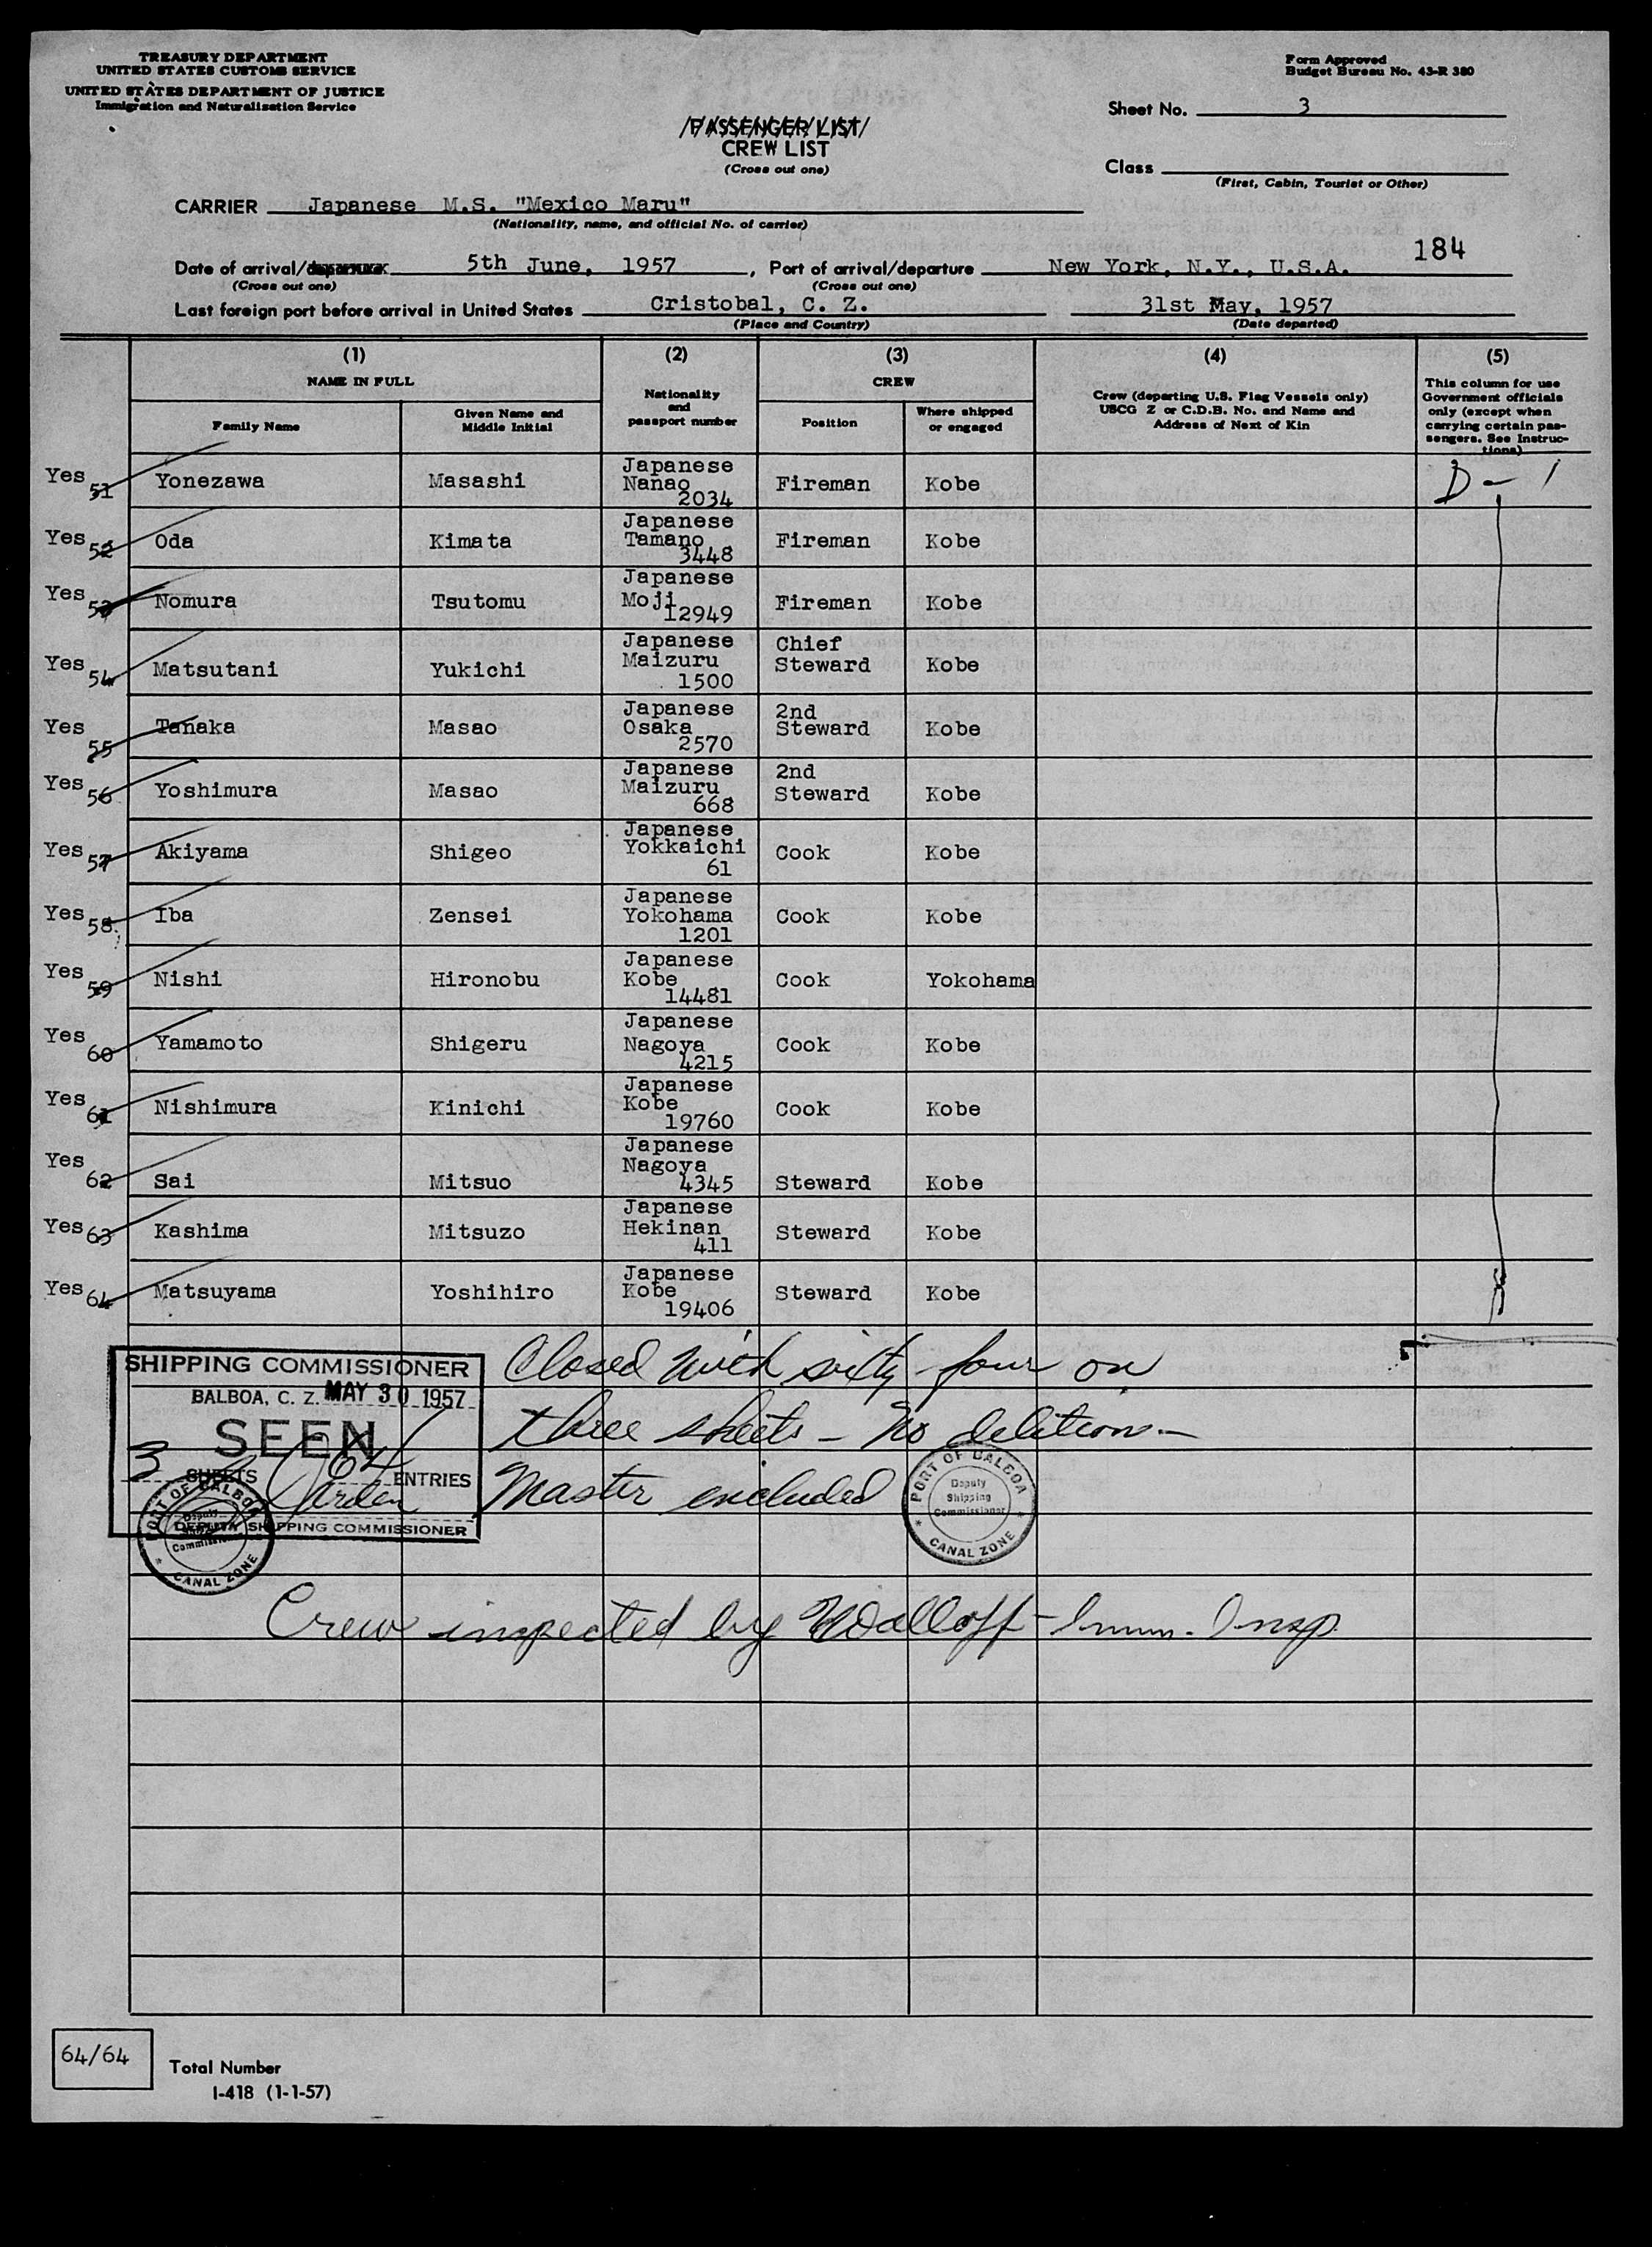 TREASURY DEPARTMENT
UNITED STATES CUSTOMS SERVICE
UNITED STATES DEPARTMENT OF JUSTICE
Immigration and Naturalization Service
Form Approved
Budget Bureau No. 43-R 380
Sheet No. 3
/PASSENGER/LIST/
CREW LIST
(Cross out one)
Class
(First, Cabin, Tourist or Other)
CARRIER Japanese M.S. "Mexico Maru"
(Nationality, name, and official No. of carrier)
184
Date of arrival/departure 5th June, 1957, Port of arrival/departure New York, N.Y., U.S.A.
(Cross out one) (Cross out one)
Last foreign port before arrival in United States Cristobal, C. Z. 31st May, 1957
(Place and Country) (Date departed)
(1) (2) (3) (4) (5)
NAME IN FULL
Family Name
Given Name and
Middle Initial
Nationality
and
passport number
CREW
Position
Where shipped
or engaged
Crew (departing U.S. Flag Vessels only)
USCG Z or C.D.B. No. and Name and
Address of Next of Kin
This column for use
Government officials
only (except when
carrying certain pas-
sengers. See Instruc-
tions)
Yes 51 Yonezawa Masashi Japanese Nanao 2034 Fireman Kobe D - 1
Yes 52 Oda Kimata Japanese Tamano 3448 Fireman Kobe
Yes 53 Nomura Tsutomu Japanese Moji 12949 Fireman Kobe
Yes 54 Matsutani Yukichi Japanese Maizuru 1500 Chief Steward Kobe
Yes 55 Tanaka Masao Japanese Osaka 2570 2nd Steward Kobe
Yes 56 Yoshimura Masao Japanese Maizuru 668 2nd Steward Kobe
Yes 57 Akiyama Shigeo Japanese Yokkaichi 61 Cook Kobe
Yes 58 Iba Zensei Japanese Yokohama 1201 Cook Kobe
Yes 59 Nishi Hironobu Japanese Kobe 14481 Cook Yokohama
Yes 60 Yamamoto Shigeru Japanese Nagoya 4215 Cook Kobe
Yes 61 Nishimura Kinichi Japanese Kobe 19760 Cook Kobe
Yes 62 Sai Mitsuo Japanese Nagoya 4345 Steward Kobe
Yes 63 Kashima Mitsuzo Japanese Hekinan 411 Steward Kobe
Yes 64 Matsuyama Yoshihiro Japanese Kobe 19406 Steward Kobe
SHIPPING COMMISSIONER
BALBOA, C. Z. MAY 30 1957
SEEN
3 SHEETS 64 ENTRIES
DEPUTY SHIPPING COMMISSIONER
PORT OF BALBOA
Deputy
Shipping
Commissioner
* CANAL ZONE
Closed with sixty-four on
three sheets - No deletion -
Master included
PORT OF BALBOA
Deputy
Shipping
Commissioner
* CANAL ZONE *
Crew inspected by Walloff - Imm. Insp.
64/64
Total Number
I-418 (1-1-57)